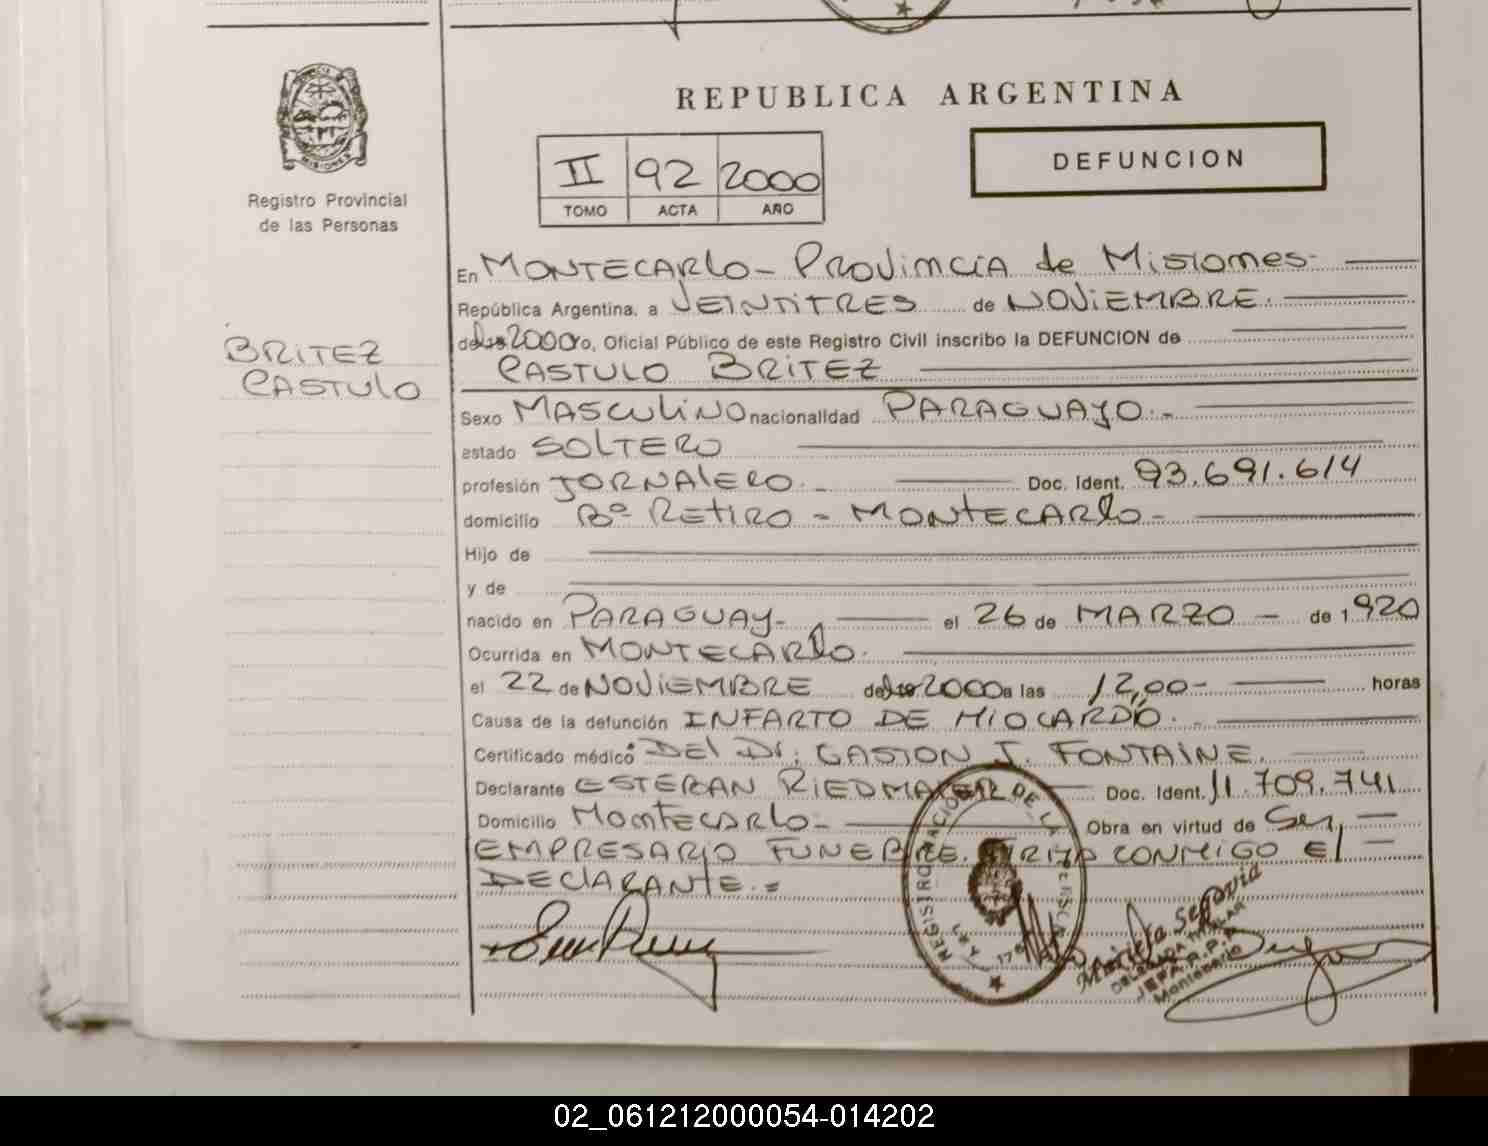 REPUBLICA ARGENTINA
MISIONES
Registro Provincial
de las Personas
II 92 2000
TOMO ACTA AÑO
DEFUNCION
BRITEZ
CASTULO
En MONTECARLO - PROVINCIA de MISIONES
República Argentina, a VEINTITRES de NOVIEMBRE.
de 2000 yo, Oficial Público de este Registro Civil inscribo la DEFUNCION de
CASTULO BRITEZ
Sexo MASCULINO nacionalidad PARAGUAYO.-
estado SOLTERO
profesión JORNALERO.- Doc. Ident. 93.691.614
domicilio Bº RETIRO - MONTECARLO -
Hijo de
y de
nacido en PARAGUAY- el 26 de MARZO - de 1920
Ocurrida en MONTECARLO.
el 22 de NOVIEMBRE de 2000 a las 12,00- horas
Causa de la defunción INFARTO DE MIOCARDIO.-
Certificado médico DEl Dr. GASTON J. FONTAINE.
Declarante ESTEBAN RIEDMAIER Doc. Ident. 11.709.741
Domicilio MONTECARLO- Obra en virtud de Ser, -
EMPRESARIO FUNEBRE. FIRMA CONMIGO El -
DECLARANTE.=
Mariela Segovia
DELEGADA TITULAR
Montecarlo
02_061212000054-014202